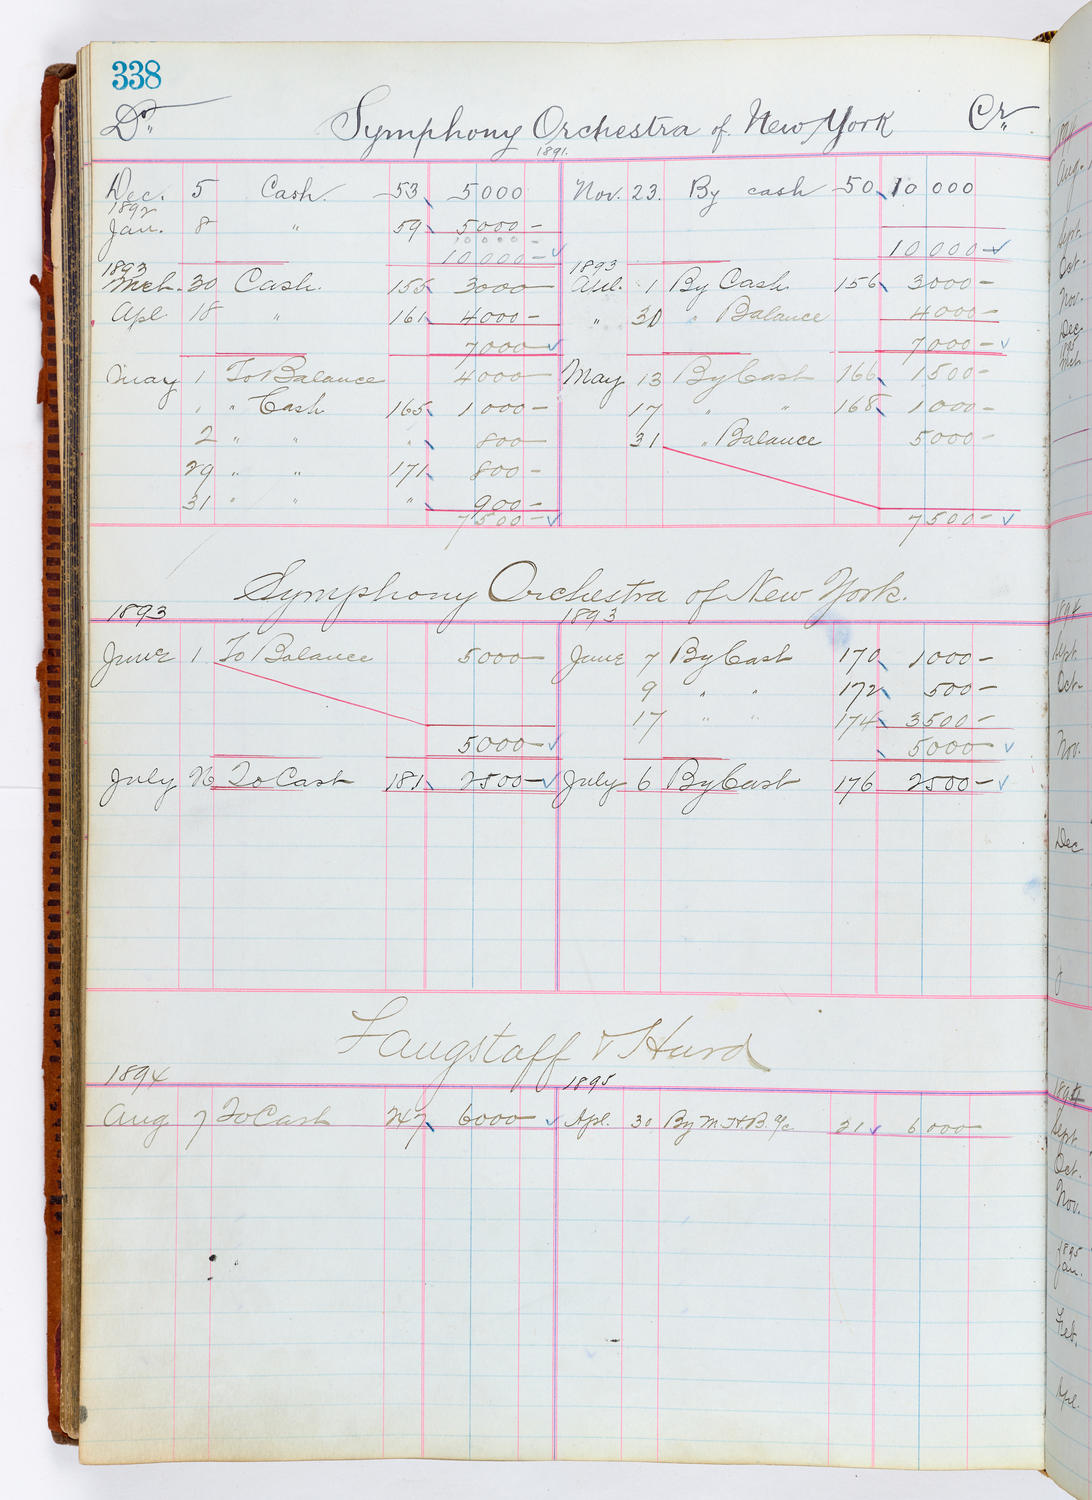 338
Dr. Symphony Orchestra of New York Cr.
1891.
Dec. 5 Cash. 53 5000 Nov. 23. By cash 50 10 000
1892
Jan. 8 " 59 5000 -
10000 -
10000 - 10000 -
1893 1893
Mch. 30 Cash. 155 3000 - 1 By Cash 156 3000 -
Apl 18 " 161 4000 - " 30 " Balance 4000 -
7000 - 7000 -
May 1 To Balance 4000 - May 13 By Cash 166 1500 -
" " Cash 165 1000 - 17 " " 168 1000 -
2 " " " 800 - 31 " Balance 5000 -
29 " " 171 800 -
31 " " " 900 -
7500 - 7500 -
Symphony Orchestra of New York.
1893 1893
June 1 To Balance 5000 - June 7 By Cash 170 1000 -
9 " " 172 500 -
17 " " 174 3500 -
5000 - 5000 -
July 26 To Cash 181 2500 - July 6 By Cash 176 2500 -
Langstaff & Hurd
1894 1895
Aug 7 To Cash 247 6000 - Apl. 30 By M. H & B. a/c 21 6000
Aug.
Sept.
Oct.
Nov.
Dec
Mch
Sept.
Oct.
Nov.
Dec
Sept.
Oct.
Nov.
1895
Jan.
Feb.
Apl.